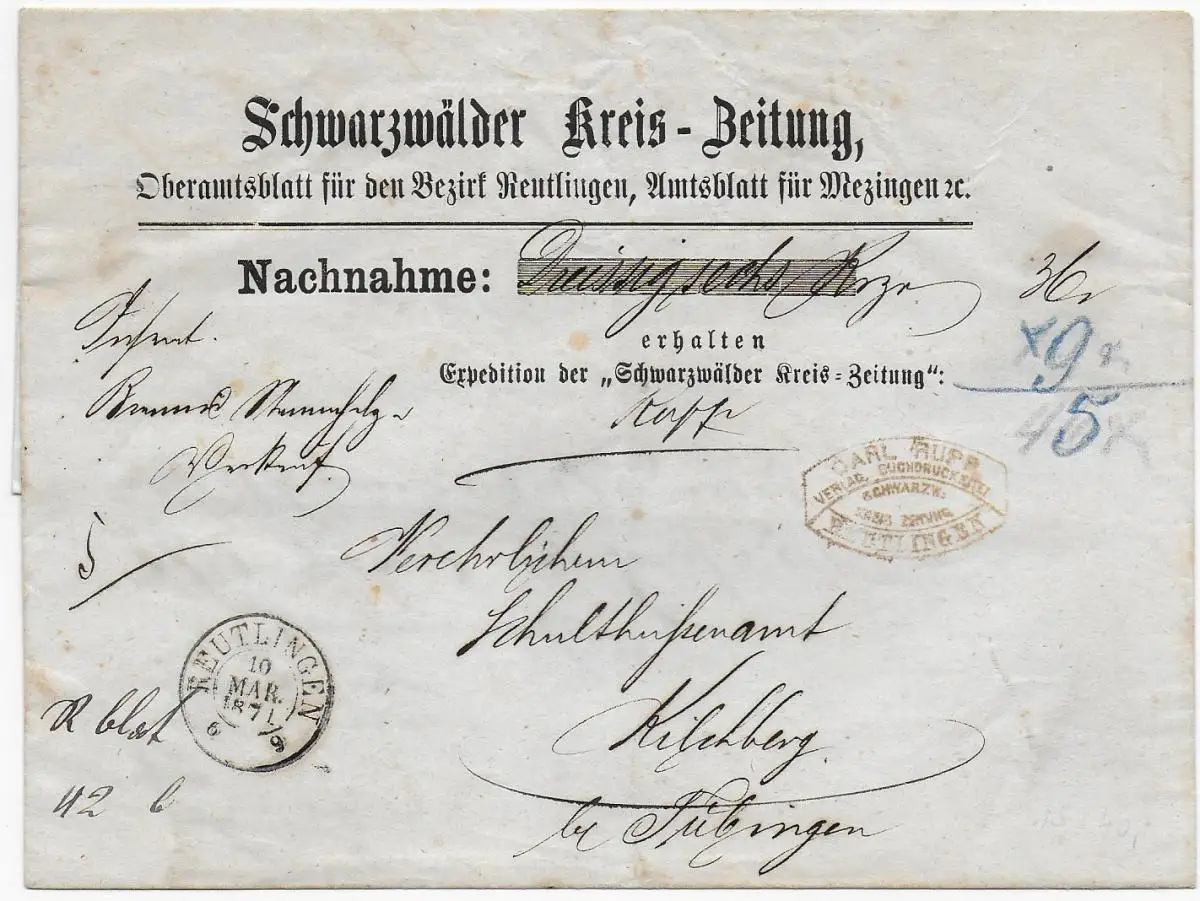 Schwarzwälder Kreis-Zeitung,
Oberamtsblatt für den Bezirk Reutlingen, Amtsblatt für Mezingen ꝛc.
Nachnahme: Dreissig sechs Krzr 36 x
erhalten
Expedition der „Schwarzwälder Kreis-Zeitung":
Rupp
x 9 x.
45 x
Inserat.
Brenn & Stammholz
Verkauf
CARL RUPP
VERLAG, BUCHDRUCKEREI
SCHWARZW:
KREIS ZEITUNG
REUTLINGEN
5
Verehrlichem
Schultheissenamt
Kilchberg
be Tübingen
REUTLINGEN
10
MAR.
1871
6 9
R blat
42 b